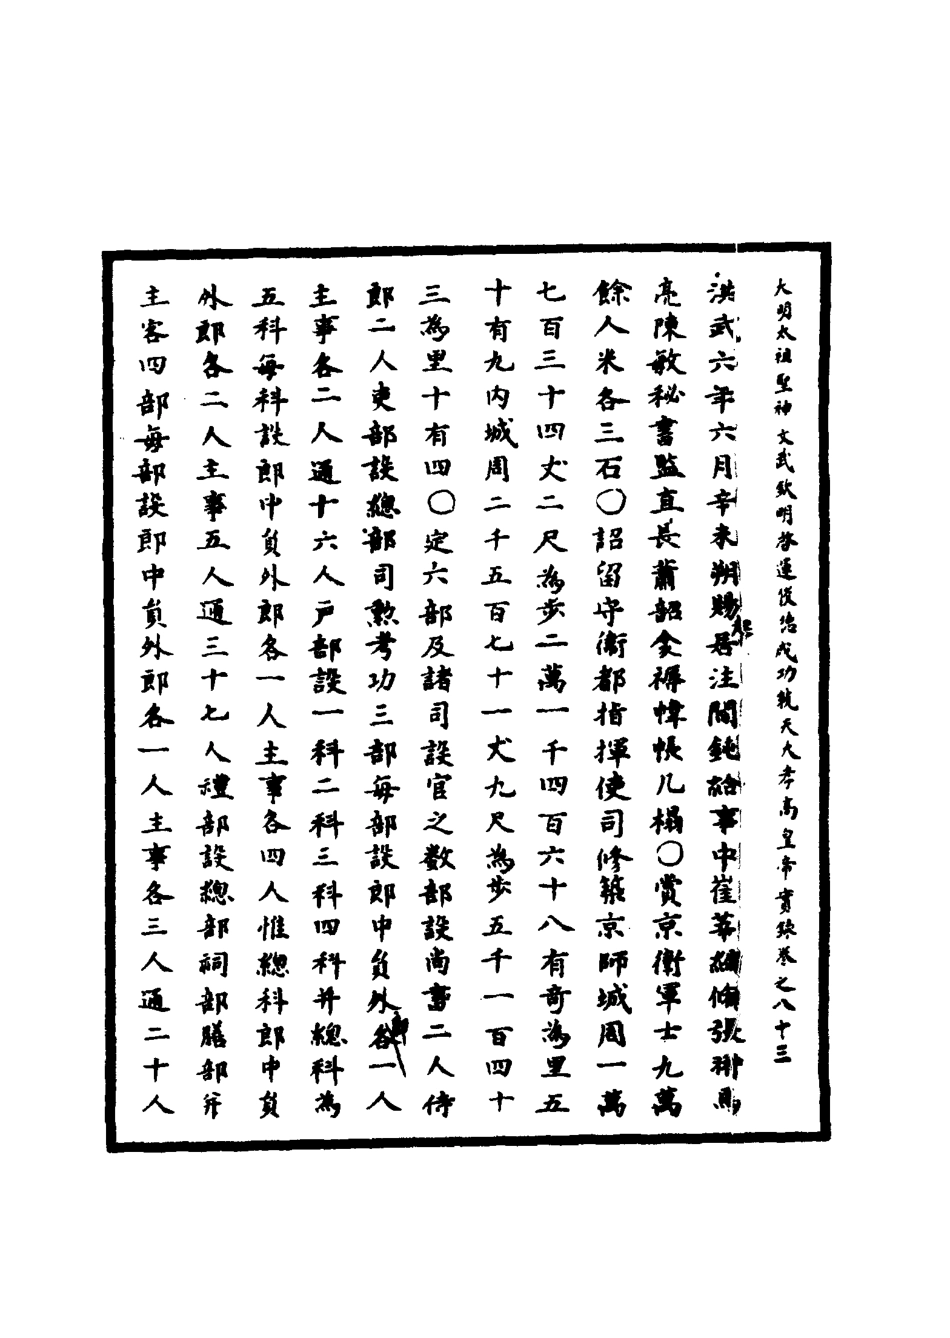 大明太祖聖神文武欽明啓運俊德成功統天大孝高皇帝實錄卷之八十三
洪武六年六月辛未朔賜起居注閻鈍給事中崔莘編脩張翀馬
亮陳敏秘書監直長蕭韶衾褥幃帳几榻〇賞京衛軍士九萬
餘人米各三石〇詔留守衛都指揮使司修築京師城周一萬
七百三十四丈二尺為步二萬一千四百六十八有奇為里五
十有九內城周二千五百七十一丈九尺為步五千一百四十
三為里十有四〇定六部及諸司設官之數部設尚書二人侍
郎二人吏部設總部司勲考功三部每部設郎中員外郎各一人
主事各二人通十六人戸部設一科二科三科四科并總科為
五科每科設郎中員外郎各一人主事各四人惟總科郎中員
外郎各二人主事五人通三十七人禮部設總部祠部膳部并
主客四部每部設郎中員外郎各一人主事各三人通二十人